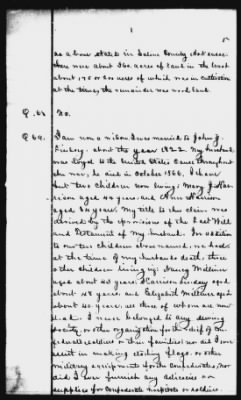 5
as above stated in Saline County, Arkansas.
there was about 360 acres of land in the tract
about 175 or 200 acres of which was in cultivation
at the time, the remainder was wood land.
Q. 68. No.
Q. 69. I am now a widow. I was married to John J.
about the year 1822. My husband
was loyal to the United States Cause throughout
the war; he died in October 1866. I have
but two children now living; Mary J.
aged 40 years, and Ann
aged 34 years. My title to this claim was
derived by the provisions of the Last Will
and Testament of my husband. In addition
to our two children above named, we had
at the time of my husband's death, three
other children living viz: Nancy
aged about 40 years. Harrison aged
about 48 years and Elizabeth
aged about 40 years, all three of whom are now
dead. I never belonged to any sewing
society, or other organization for the relief of Con-
federate soldiers or their families nor did I ever
assist in making clothing, flags, or other
military equipments for the Confederates, nor
did I ever furnish any delicacies or
supplies for Confederate hospitals or soldiers.